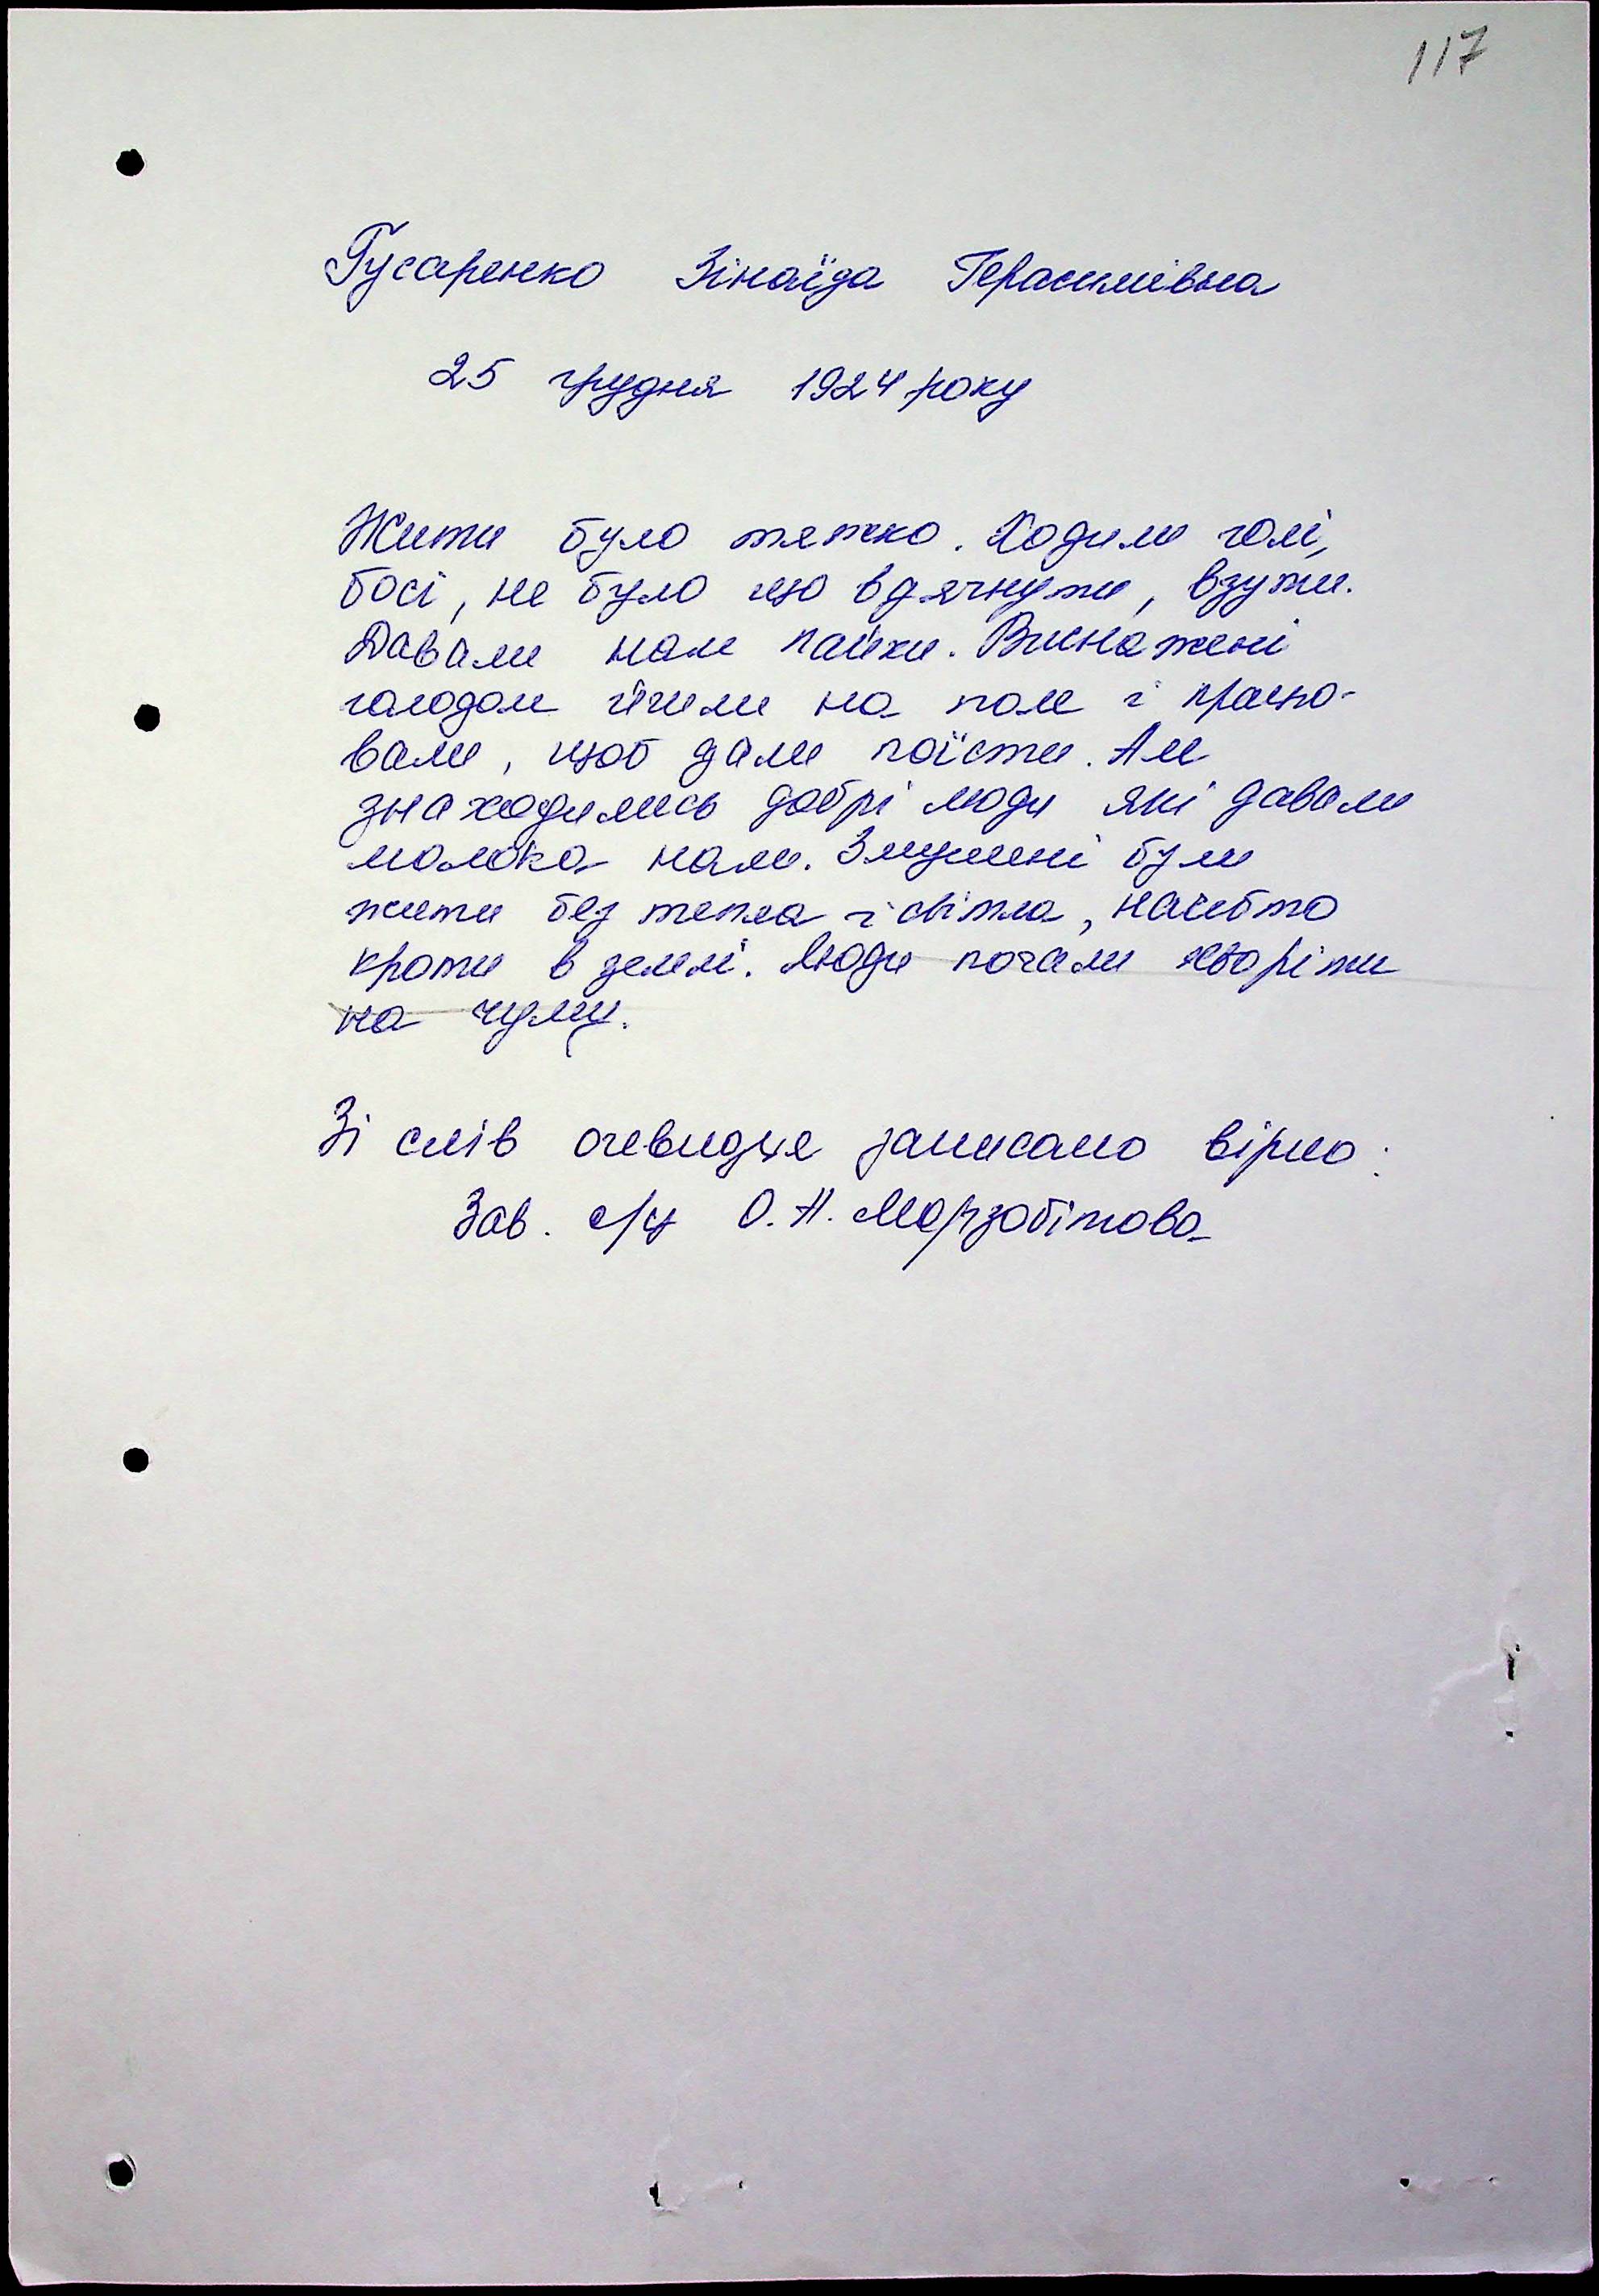 117
Гусаренко Зінаїда Герасимівна
25 грудня 1924 року
Жити було тяжко. Ходили голі,
босі, не було що вдягнути, взути.
Давали нам пайки. Виснажені
голодом йшли на поле і працю-
вали, щоб дали поїсти. Але
знаходились добрі люди які давали
молока нам. Змушені були
жити без тепла і світла, начебто
кроти в землі. Люди почали хворіти
на чуму.
Зі слів очевидця записано вірно:
Зав. с/ф О. Н. Мерзобітова